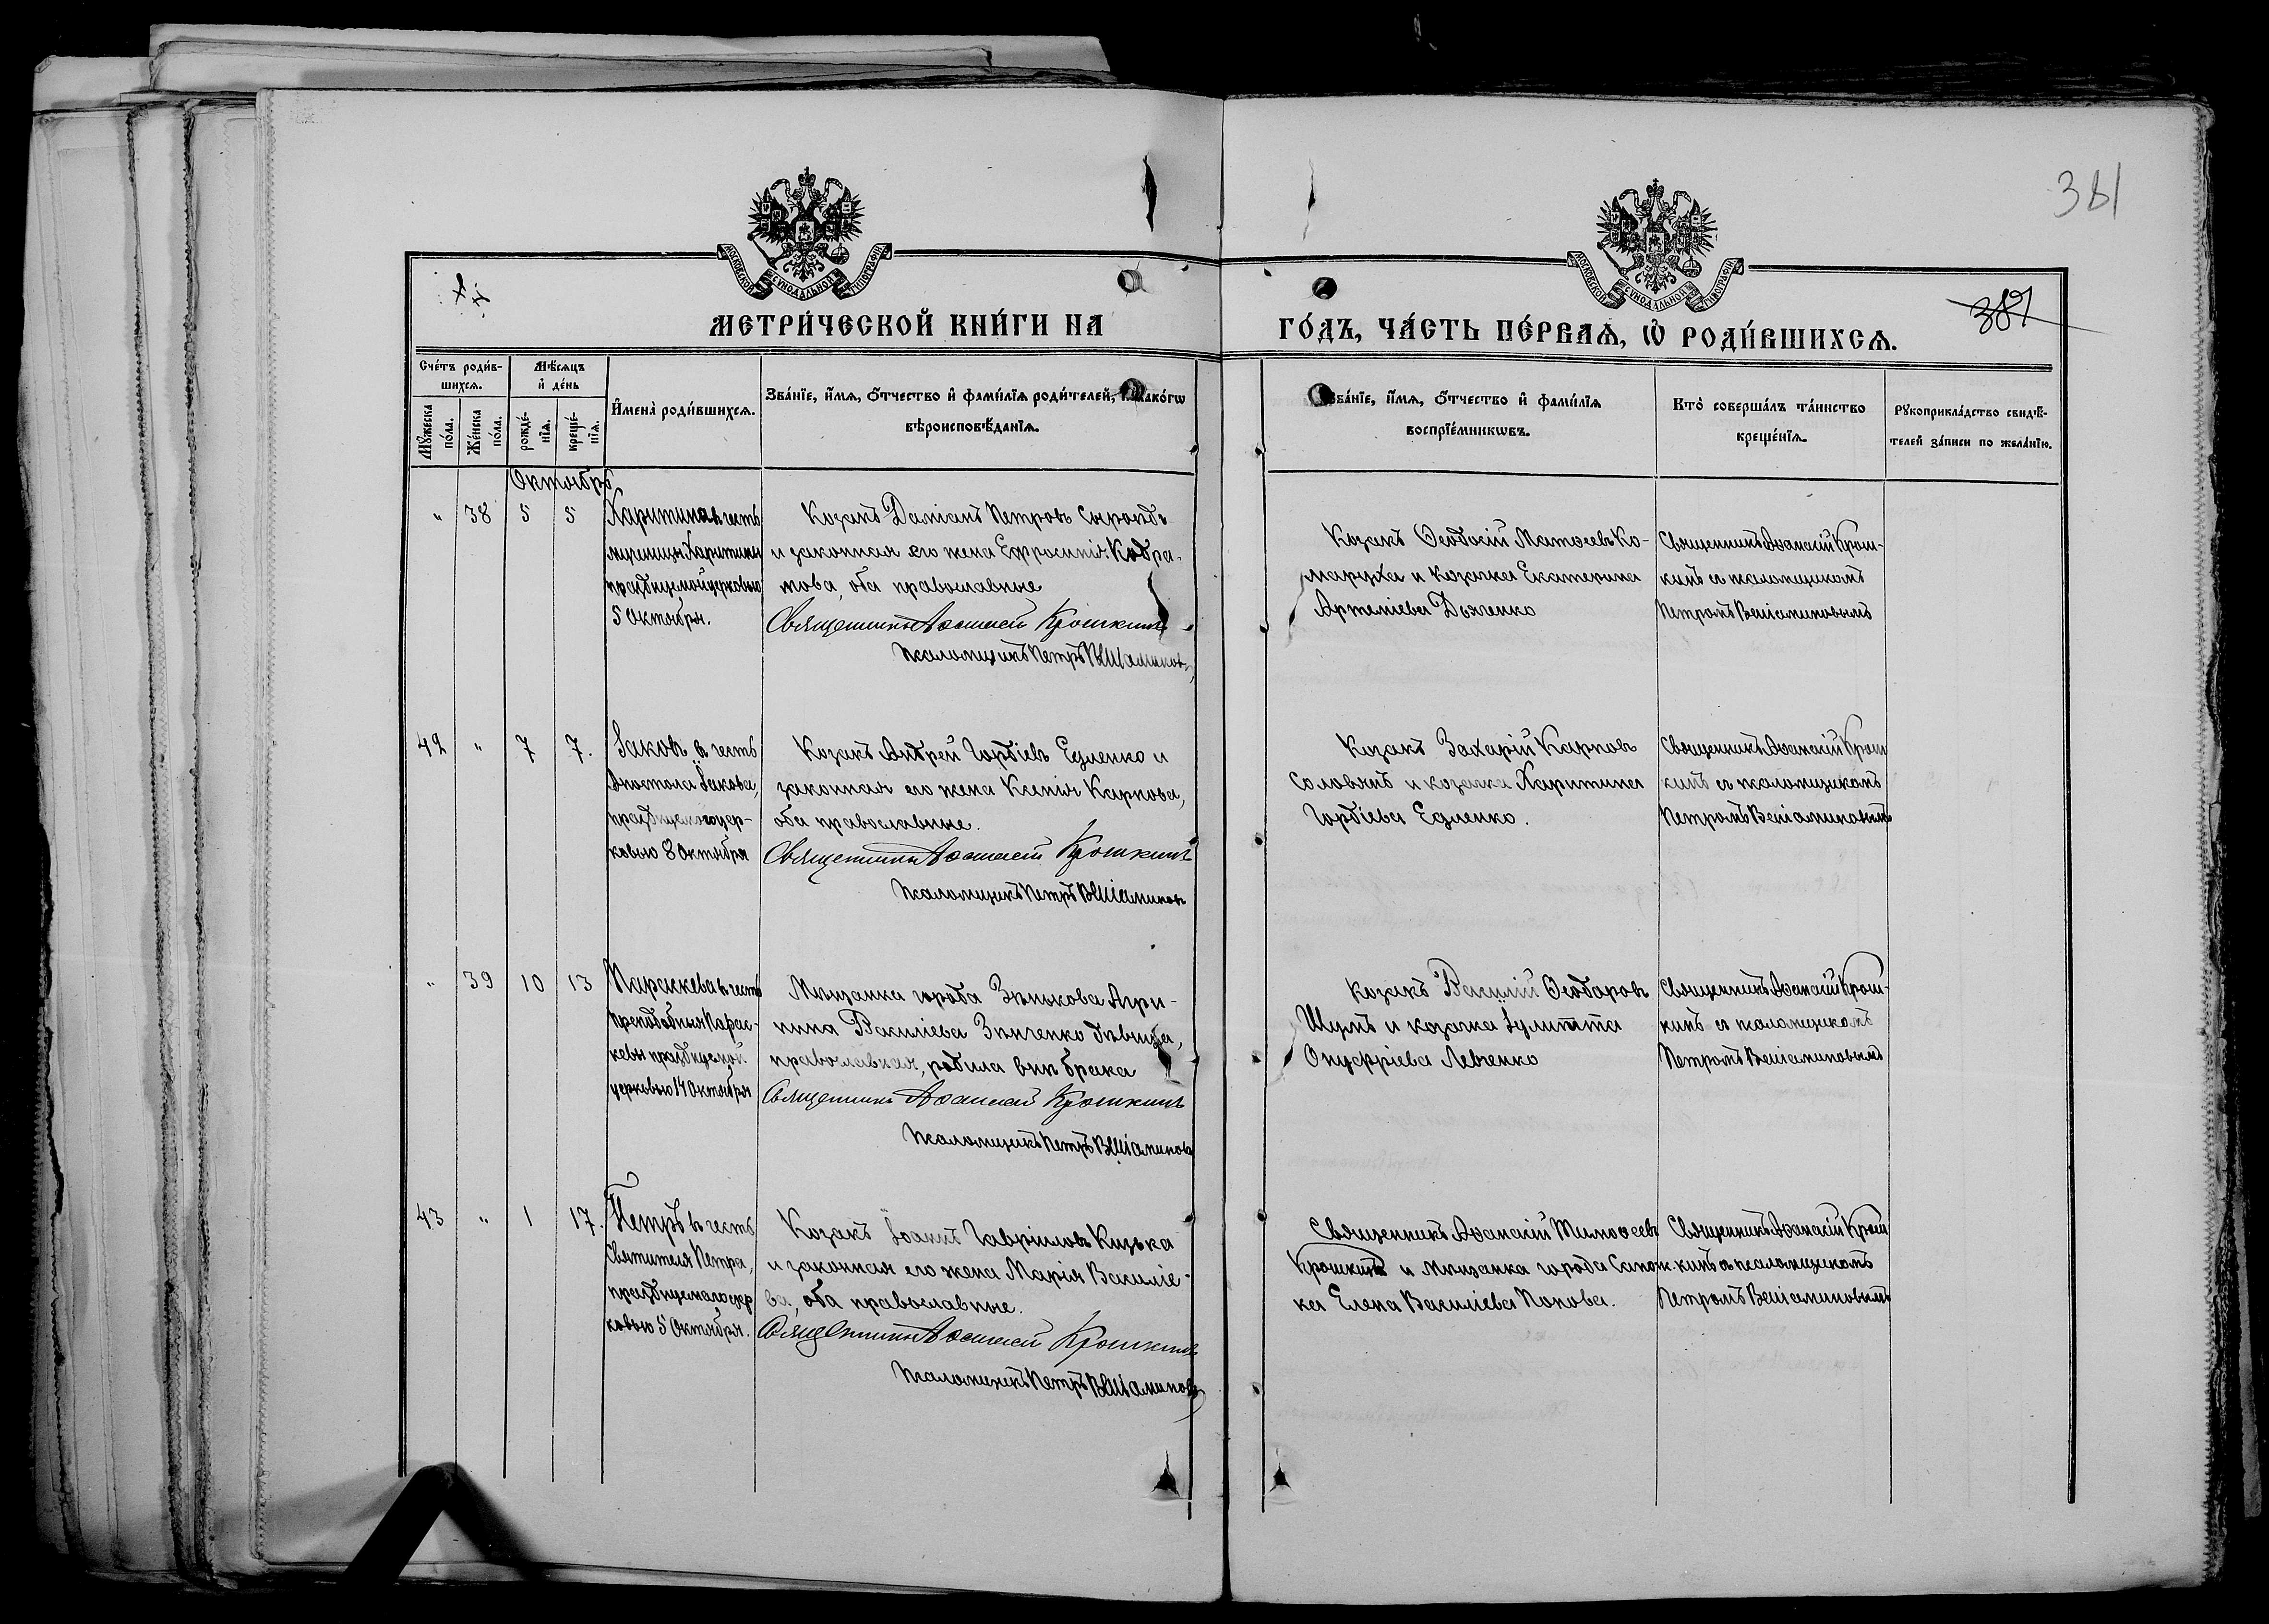 381
МОСКОВСКОЙ СУНОДАЛЬНОЙ ТИПОГРАФИИ
МОСКОВСКОЙ СУНОДАЛЬНОЙ ТИПОГРАФИИ
387
МЕТРИ́ЧЕСКОЙ КНИ́ГИ НА
ГО́ДЪ, ЧА́СТЬ ПЕ́РВАѦ, Ѡ РОДИ́ВШИХСѦ.
Сче́тъ роди́в-
шихсѧ.
Мѣ́сѧцъ
и де́нь
Мꙋ́жеска
по́ла.
Же́нска
по́ла.
рожде́-
нїѧ.
креще́-
нїѧ.
Имена̀ роди́вшихсѧ.
Зва́нїе, и́мѧ, ѻ́тчество и фами́лїѧ роди́телей, и како́гѡ
вѣроисповѣ́данїѧ.
Зва́нїе, и́мѧ, ѻ́тчество и фами́лїѧ
воспрїе́мникѡвъ.
Кто̀ соверша́лъ та́инство
креще́нїѧ.
Рꙋкоприкла́дство свидѣ́-
телей за́писи по жела́нїю.
Октябрь
" 38 5 5
Харитина въ честь
мученицы Харитины
празднуемой церковью
5 Октября.
Козакъ Даміанъ Петровъ
и законная его жена Ефросинія
това, оба православные
Священникъ Аѳанасій Крошкинъ
Псаломщикъ Петръ Веніаминовъ
Козакъ Ѳеодосій Матѳеевъ Ко-
маруха и козачка Екатерина
Артеміева Дяченко
Священникъ Аѳанасій Крош-
кинъ съ псаломщикомъ
Петромъ Веніаминовымъ
42 " 7 7.
Іаковъ въ честь
Апостола Іакова,
празднуемого цер-
ковью 8 Октября
Козакъ Андрей Гордіевъ Едменко и
законная его жена Ксенія Карпова,
оба православные.
Священникъ Аѳанасій Крошкинъ
Псаломщикъ Петръ Веніаминовъ
Козакъ Захарій Карповъ
Соловянъ и козачка Харитина
Гордіева Едменко.
Священникъ Аѳанасій Крош
кинъ съ псаломщикомъ
Петромъ Веніаминовымъ
" 39 10 13
Параскева въ честь
Преподобныя Парас-
кевы празднуемой
церковью 14 Октября
Мѣщанка города Зѣнькова Агри-
пина Василіева Зѣнченко дѣвица,
православная, родила внѣ брака
Священникъ Аѳанасій Крошкинъ
Псаломщикъ Петръ Веніаминовъ
Козакъ Василій Ѳеодоровъ
Шумъ и козачка Іулитта
Онуфріева Левченко
Священникъ Аѳанасій Крош-
кинъ съ псаломщикомъ
Петромъ Веніаминовымъ
43 " 1 17.
Петръ въ честь
Святителя Петра,
празднуемаго цер
ковью 5 Октября.
Козакъ Іоаннъ Гавріиловъ Кизька
и законная его жена Марія Василіе-
ва, оба православные.
Священникъ Аѳанасій Крошкинъ
Псаломщикъ Петръ Веніаминовъ
Священникъ Аѳанасій Тимоѳеевъ
Крошкинъ и мѣщанка города Сапож-
ка Елена Василіева Попова.
Священникъ Аѳанасій Крош
кинъ съ псаломщикомъ
Петромъ Веніаминовымъ